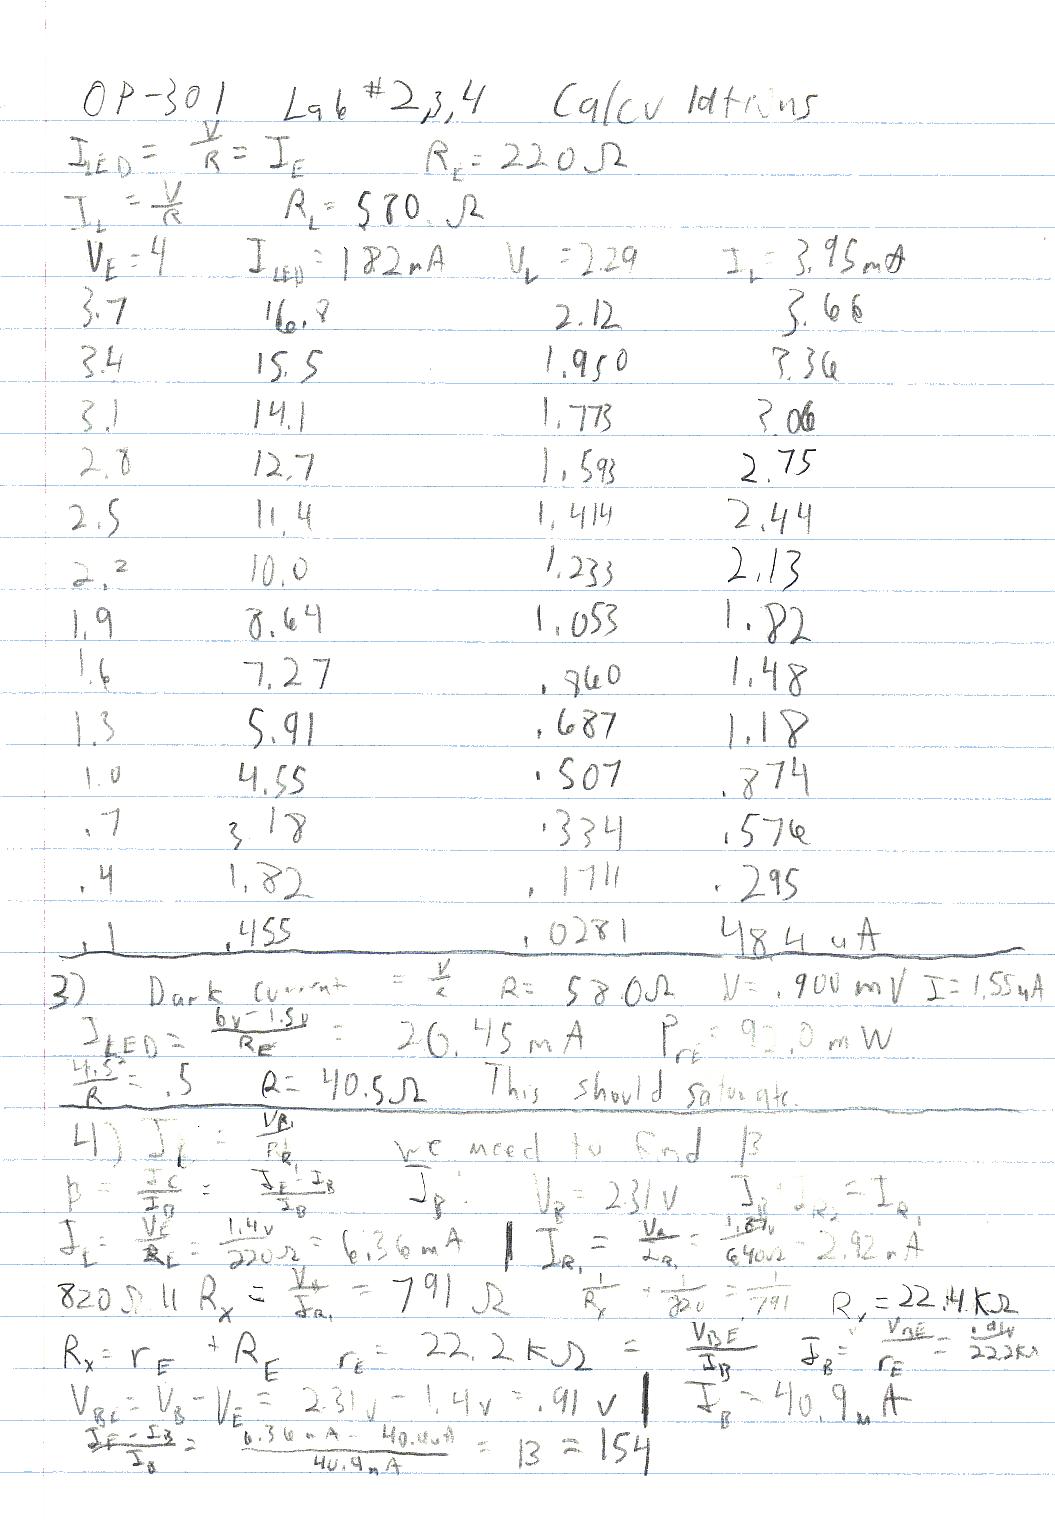 OP-301 Lab #2,3,4 Calculations
I_LED = V/R = I_E R_E = 220 Ω
I_L = V/R R_L = 580 Ω
V_E = 4 I_LED = 182 mA V_L = 2.29 I_L = 3.95 mA
3.7 16.8 2.12 3.66
3.4 15.5 1.950 3.36
3.1 14.1 1.773 3.06
2.8 12.7 1.593 2.75
2.5 11.4 1.414 2.44
2.2 10.0 1.233 2.13
1.9 8.64 1.053 1.82
1.6 7.27 .860 1.48
1.3 5.91 .687 1.18
1.0 4.55 .507 .874
.7 3.18 .334 .576
.4 1.82 .1711 .295
.1 .455 .0281 48.4 uA
3) Dark current = V/R R = 580 Ω V = .900 mV I = 1.55 uA
I_LED = 6v-1.5v/R_E = 20.45 mA P_rE = 92.0 mW
4.5²/R = .5 R = 40.5 Ω This should saturate.
4) I = V_R1/R_R1 we need to find β
β = I_C/I_B = I_E-I_B/I_B I_B: V_B = 2.31 v I_B + I_R2 = I_R1
I_L = V_E/R_L = 1.4v/220Ω = 6.36 mA | I_R1 = V_R/R_R1 = /640Ω = 2.92 mA
820 Ω || R_x = V_B/I_R1 = 791 Ω 1/R_x + 1/820 = 1/791 R_x = 22.4 KΩ
R_x = r_E + R_E r_E = 22.2 kΩ = V_BE/I_B I_B = V_BE/r_E = .91v/22.2KΩ
V_BE = V_B - V_E = 2.31v - 1.4v = .91 v | I_B = 40.9 uA
I_E-I_B/I_B = 6.36mA - 40.9uA/40.9uA = β = 154